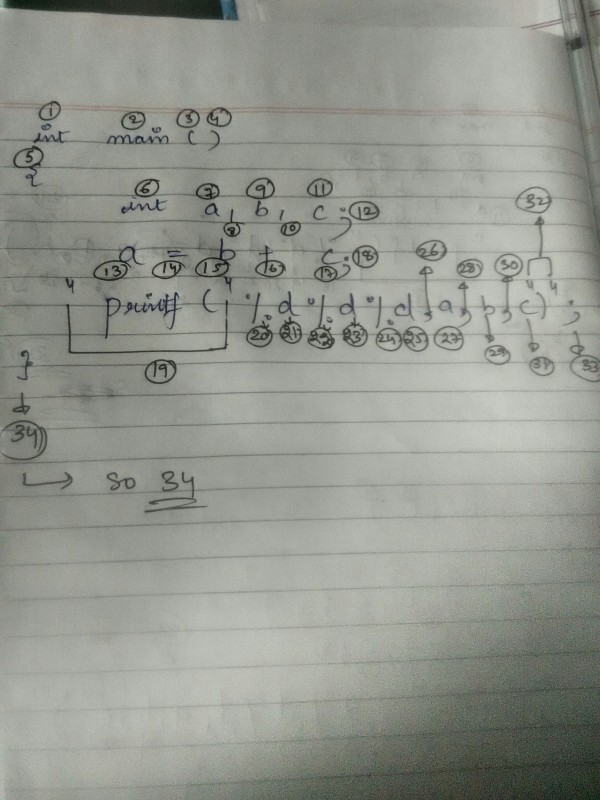 ① ② ③ ④
int main ( )
⑤
{
⑥ ⑦ ⑨ ⑪
int a, b, c ; ⑫
⑧ ⑩ 32
a = b + c ; ⑱ 26 28 30
⑬ ⑭ ⑮ ⑯ ⑰
" printf ( " % d % d % d , a , b , c " ) " ;
⑳ 21 22 23 24 25 27 29 31 33
} ⑲
34
→ so 34